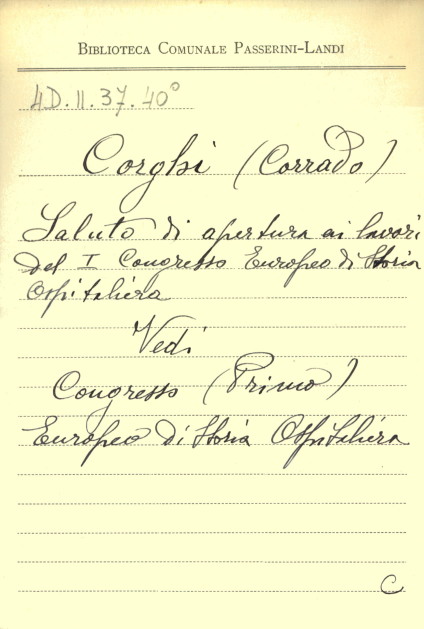 Biblioteca Comunale Passerini-Landi
4D.II.37.40°
Corghi (Corrado)
Saluto di apertura ai lavori
del I Congresso Europeo di Storia
Ospitaliera
Vedi
Congresso (Primo)
Europeo di Storia Ospitaliera
C